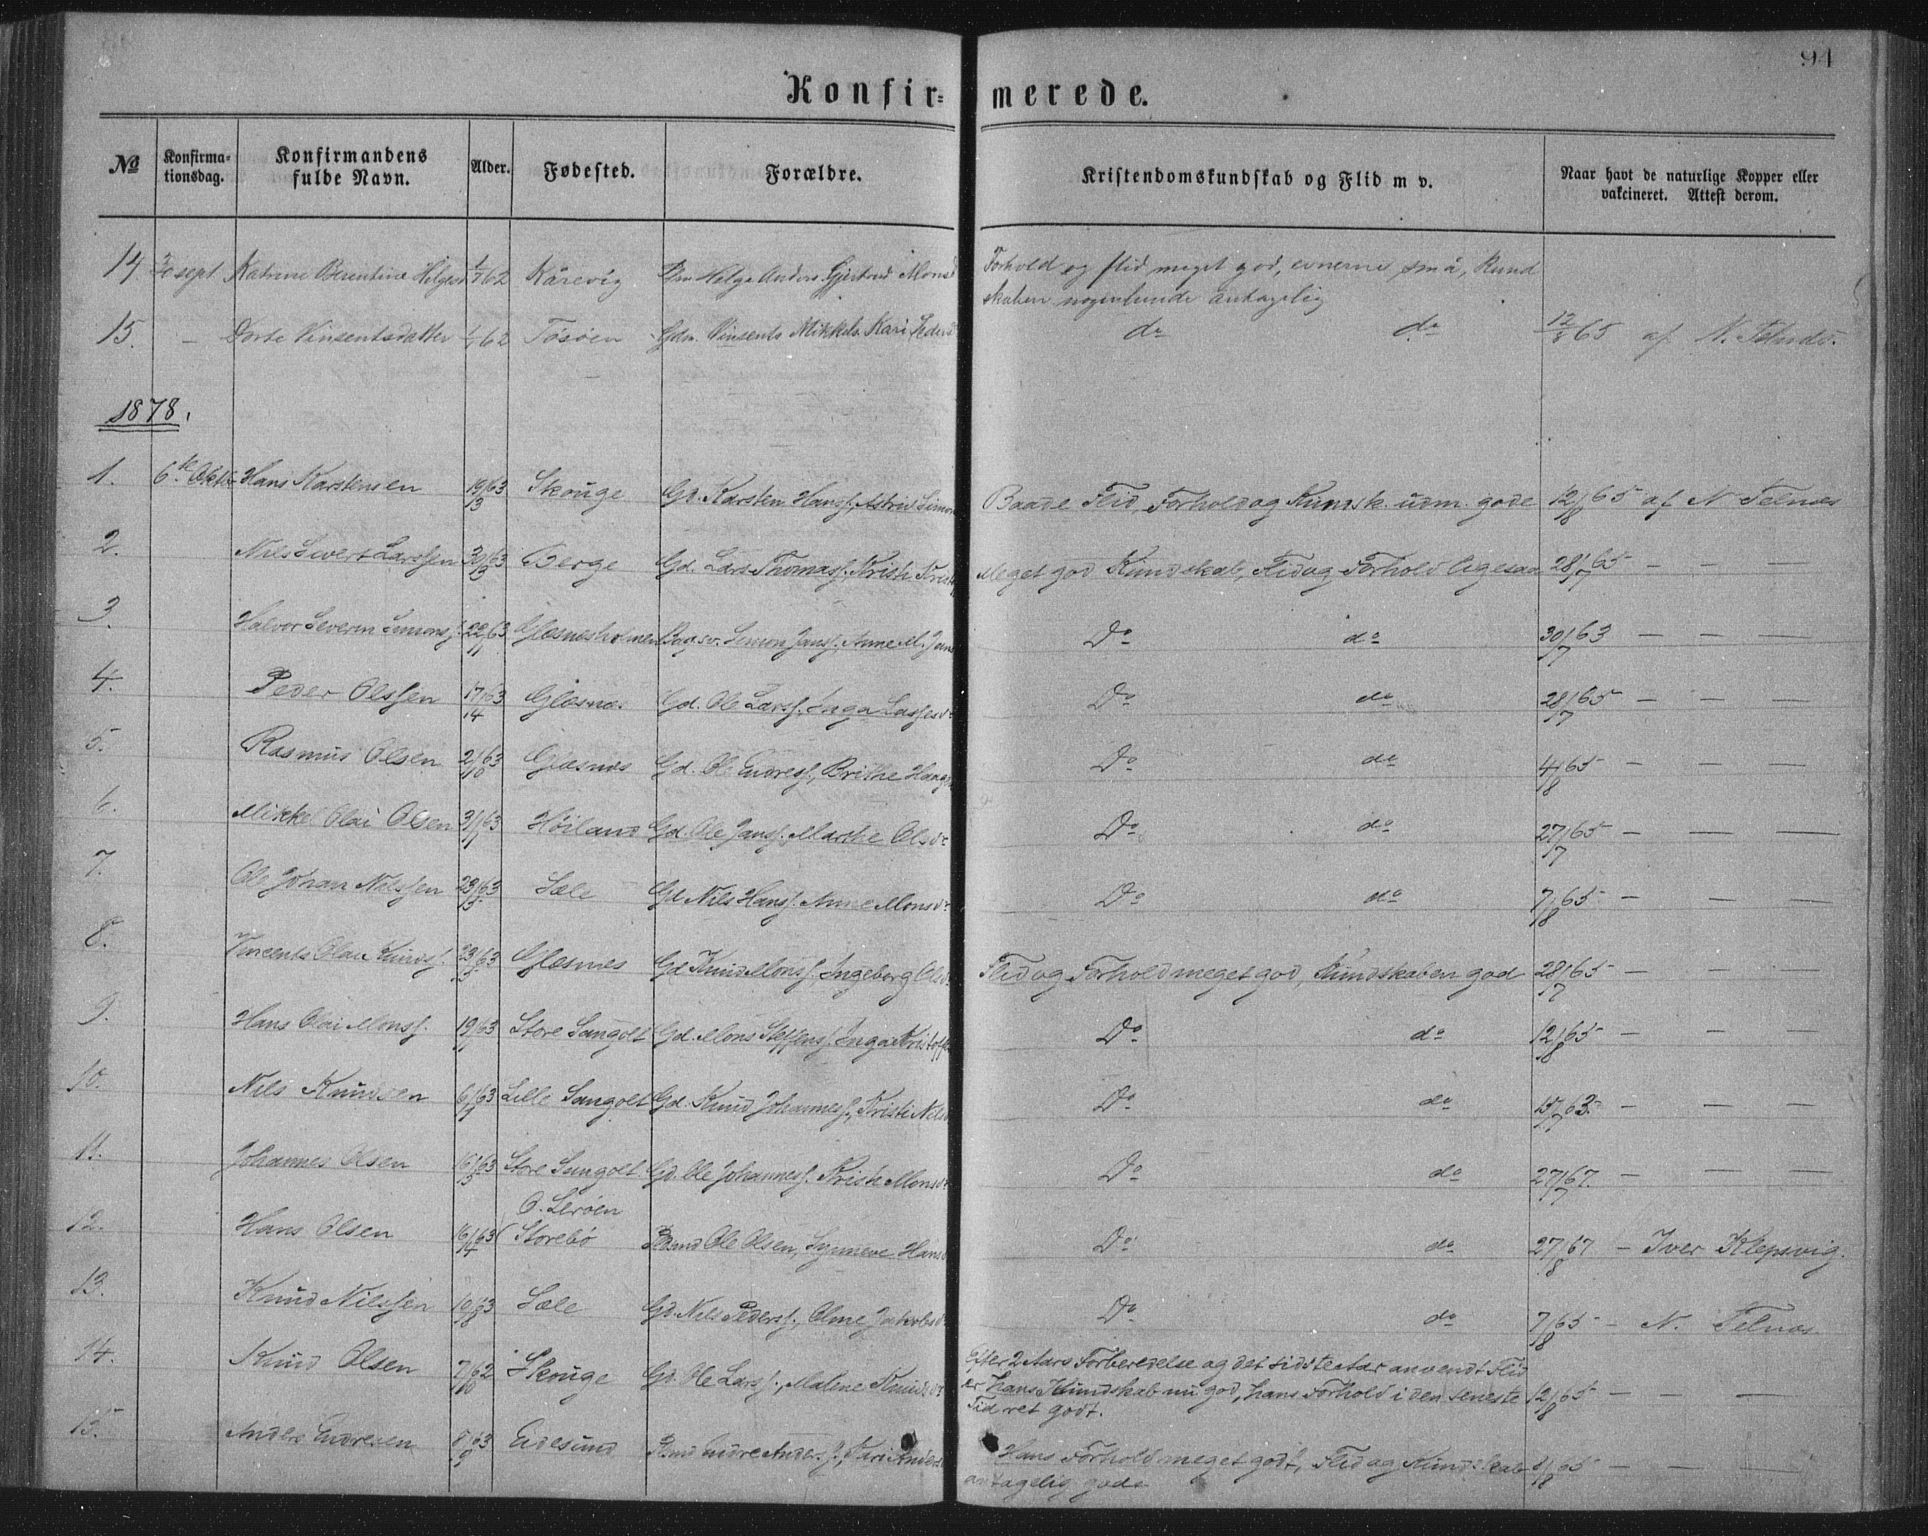 94
Konfir- merede.
№ Konfirma-tionsdag. Konfirmandens fulde Navn. Alder. Fødested. Forældre. Kristendomskundskab og Flid m v. Naar havt de naturlige Kopper eller vakcineret. Attest derom.
14. 30 sept Katrine Berentine Helgesd 1/7 62 Kårevig Helge Anders. Gjertrud Monsd Forhold og flid meget god, evnerne små, Kund
skaben nogenlunde antagelig
15. — Dorte Vinsentsdatter 62 Tösöen Gdm. Vinsents Mikkels. Kari do do 12/8 65 af N. Telnæs.
1878.
1. 6te Oktb Hans Karstensen 19/13 63 Skouge Gd. Karsten Hanss. Astrid Simon Baade Flid, Forhold og Kundsk. udm. gode 12/8 65 af N Telnæs
2. Nils Sivert Larssen 63 Berge Gd. Lars Thomass. Kristi Meget god Kundskab, Flid og Forhold ligesaa 28/7 65 — — —
3. Halvor Severin Simonss. 22/11 63 Glæsnesholmen Simon Janss. Anne M. Jans 30/7 63 — — —
Do do
4. Peder Olssen 17/14 63 Glæsnæs Gd. Ole Larss. Inga Lassesdr Do do 28/7 65 — — —
5. Rasmus Olsen 2/10 63 Glæsnæs Gd. Ole Endress., Brithe Do do 4/8 65 — — —
6. Mikkel Olai Olsen 3/11 63 Høiland Gd. Ole Janss. Marthe Olsdr Do do 27/7 65 — — —
7. Ole Johan Nilssen 63 Sæle Gd Nils Hanss. Anne Monsdr Do do 7/8 65 — — —
8. Vincents Olai Knuds. 63 Glæsnes Gd Knud Monss. Ingeborg Olsd Flid og Forhold meget god, Kundskaben god 28/7 65 — — —
9. Hans Olai Monss. 19/11 63 Store Sangolt Gd. Mons Steffens. Inga Kristoff Do do 12/8 65 — — —
10. Nils Knudsen 63 Lille Sangolt Gd. Knud Johanness., Kristi Nils Do do 15/7 63. — — —
11. Johannes Olsen 63 Store Sangolt Gd. Ole Johanness. Kristi Monsdr Do do 27/7 67. — — —
O. Lerøen
12. Hans Olsen 16/4 63 Storebø Ole Olsen, Synneve Hans Do do 27/8 67 — Iver Klepsvig.
13. Knud Nilssen 10/8 63 Sæle Gd. Nils Peders., Oline Jakobsd Do do 7/8 65 — N. Telnæs
14. Knud Olsen 7/10 62 Skouge Gd. Ole Larss., Malene Knudsdr Efter 2 Aars Forberedelse og det sidste Aar anvendt Flid
er hans Kundskab nu god, hans Forhold i den seneste 12/8 65 — — —
Tid ret godt.
15. Anders Endresen 8/9 63 Eidesund Endre Anders., Kari Anders Hans Forhold meget godt, Flid og Kundskab 8/8 65 — — —
antagelig gode